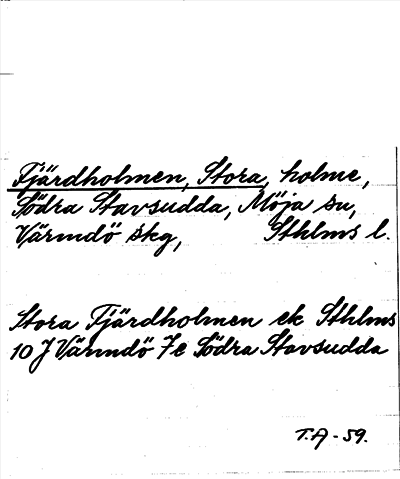 Fjärdholmen, Stora, holme,
Södra Stavsudda, Möja sn,
Värmdö skg, Sthlms l.
Stora Fjärdholmen ek Sthlms
10 J Värmdö 7e Södra Stavsudda
T.A - 59.